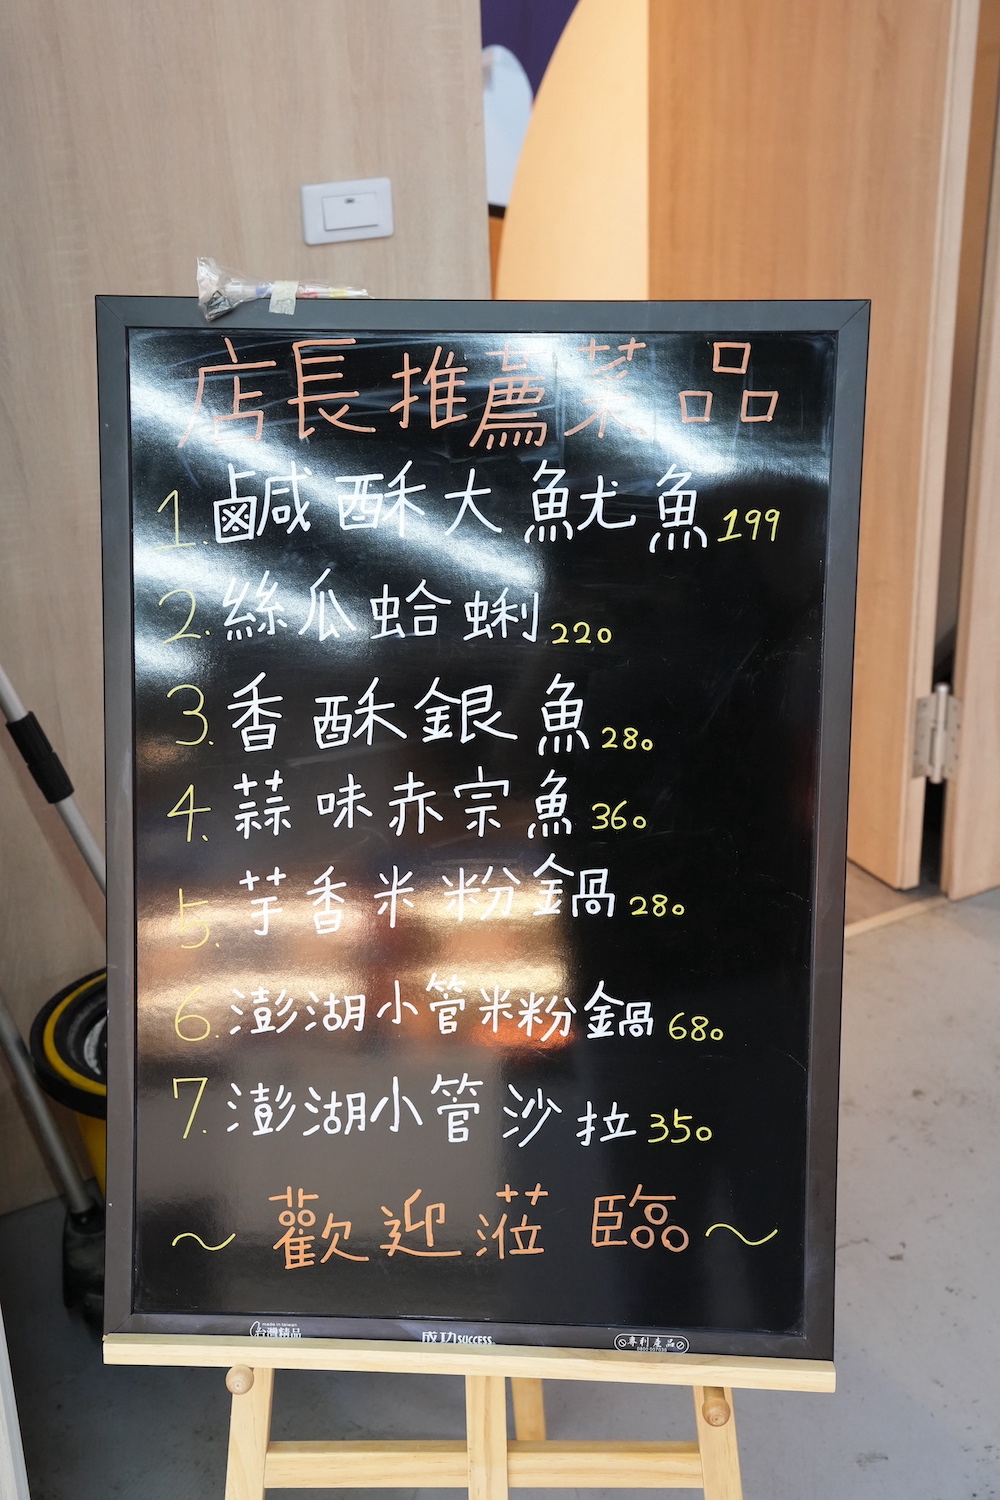 店長推薦菜品
1. 鹹酥大魷魚 199
2. 絲瓜蛤蜊 220
3. 香酥銀魚 280
4. 蒜味赤宗魚 360
5. 芋香米粉鍋 280
6. 澎湖小管米粉鍋 680
7. 澎湖小管沙拉 350
～歡迎蒞臨～
made in taiwan
台灣精品
成功 SUCCESS
專利產品